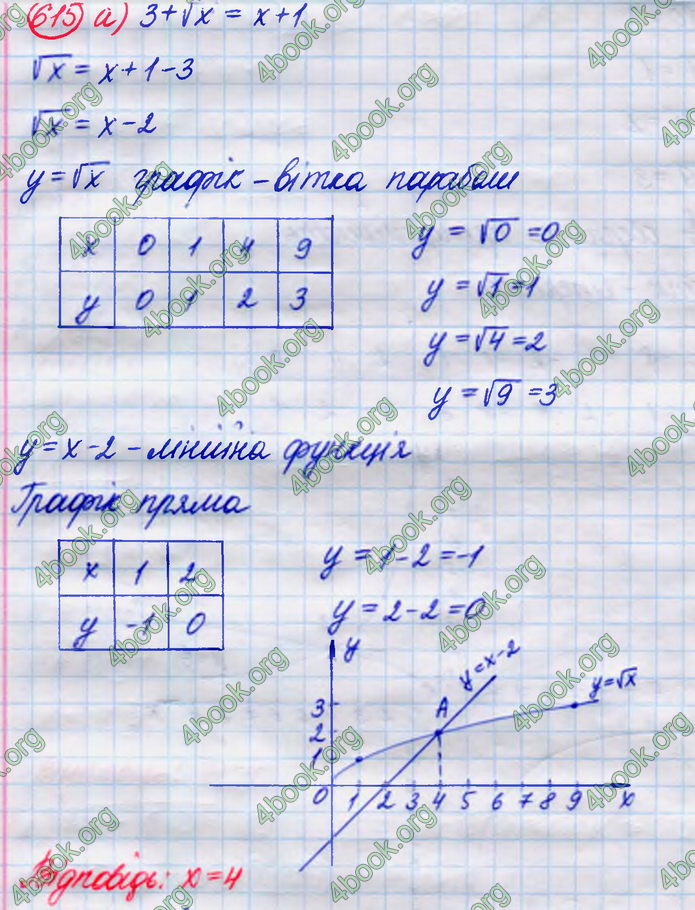 615 а) 3+√x = x+1
√x = x+1-3
√x = x-2
y=√x графік - вітка параболи
x 0 1 4 9
y 0 1 2 3
y = √0 = 0
y = √1 = 1
y = √4 = 2
y = √9 = 3
y = x-2 - лінійна функція
Графік пряма
x 1 2
y -1 0
y = 1-2 = -1
y = 2-2 = 0
y
y=x-2
y=√x
A
3
2
1
0 1 2 3 4 5 6 7 8 9 x
Відповідь: x=4
4book.org